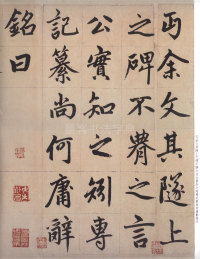 丐余文其隧上
之碑不之言
公實知之矧專
記纂尚何庸辭
銘曰